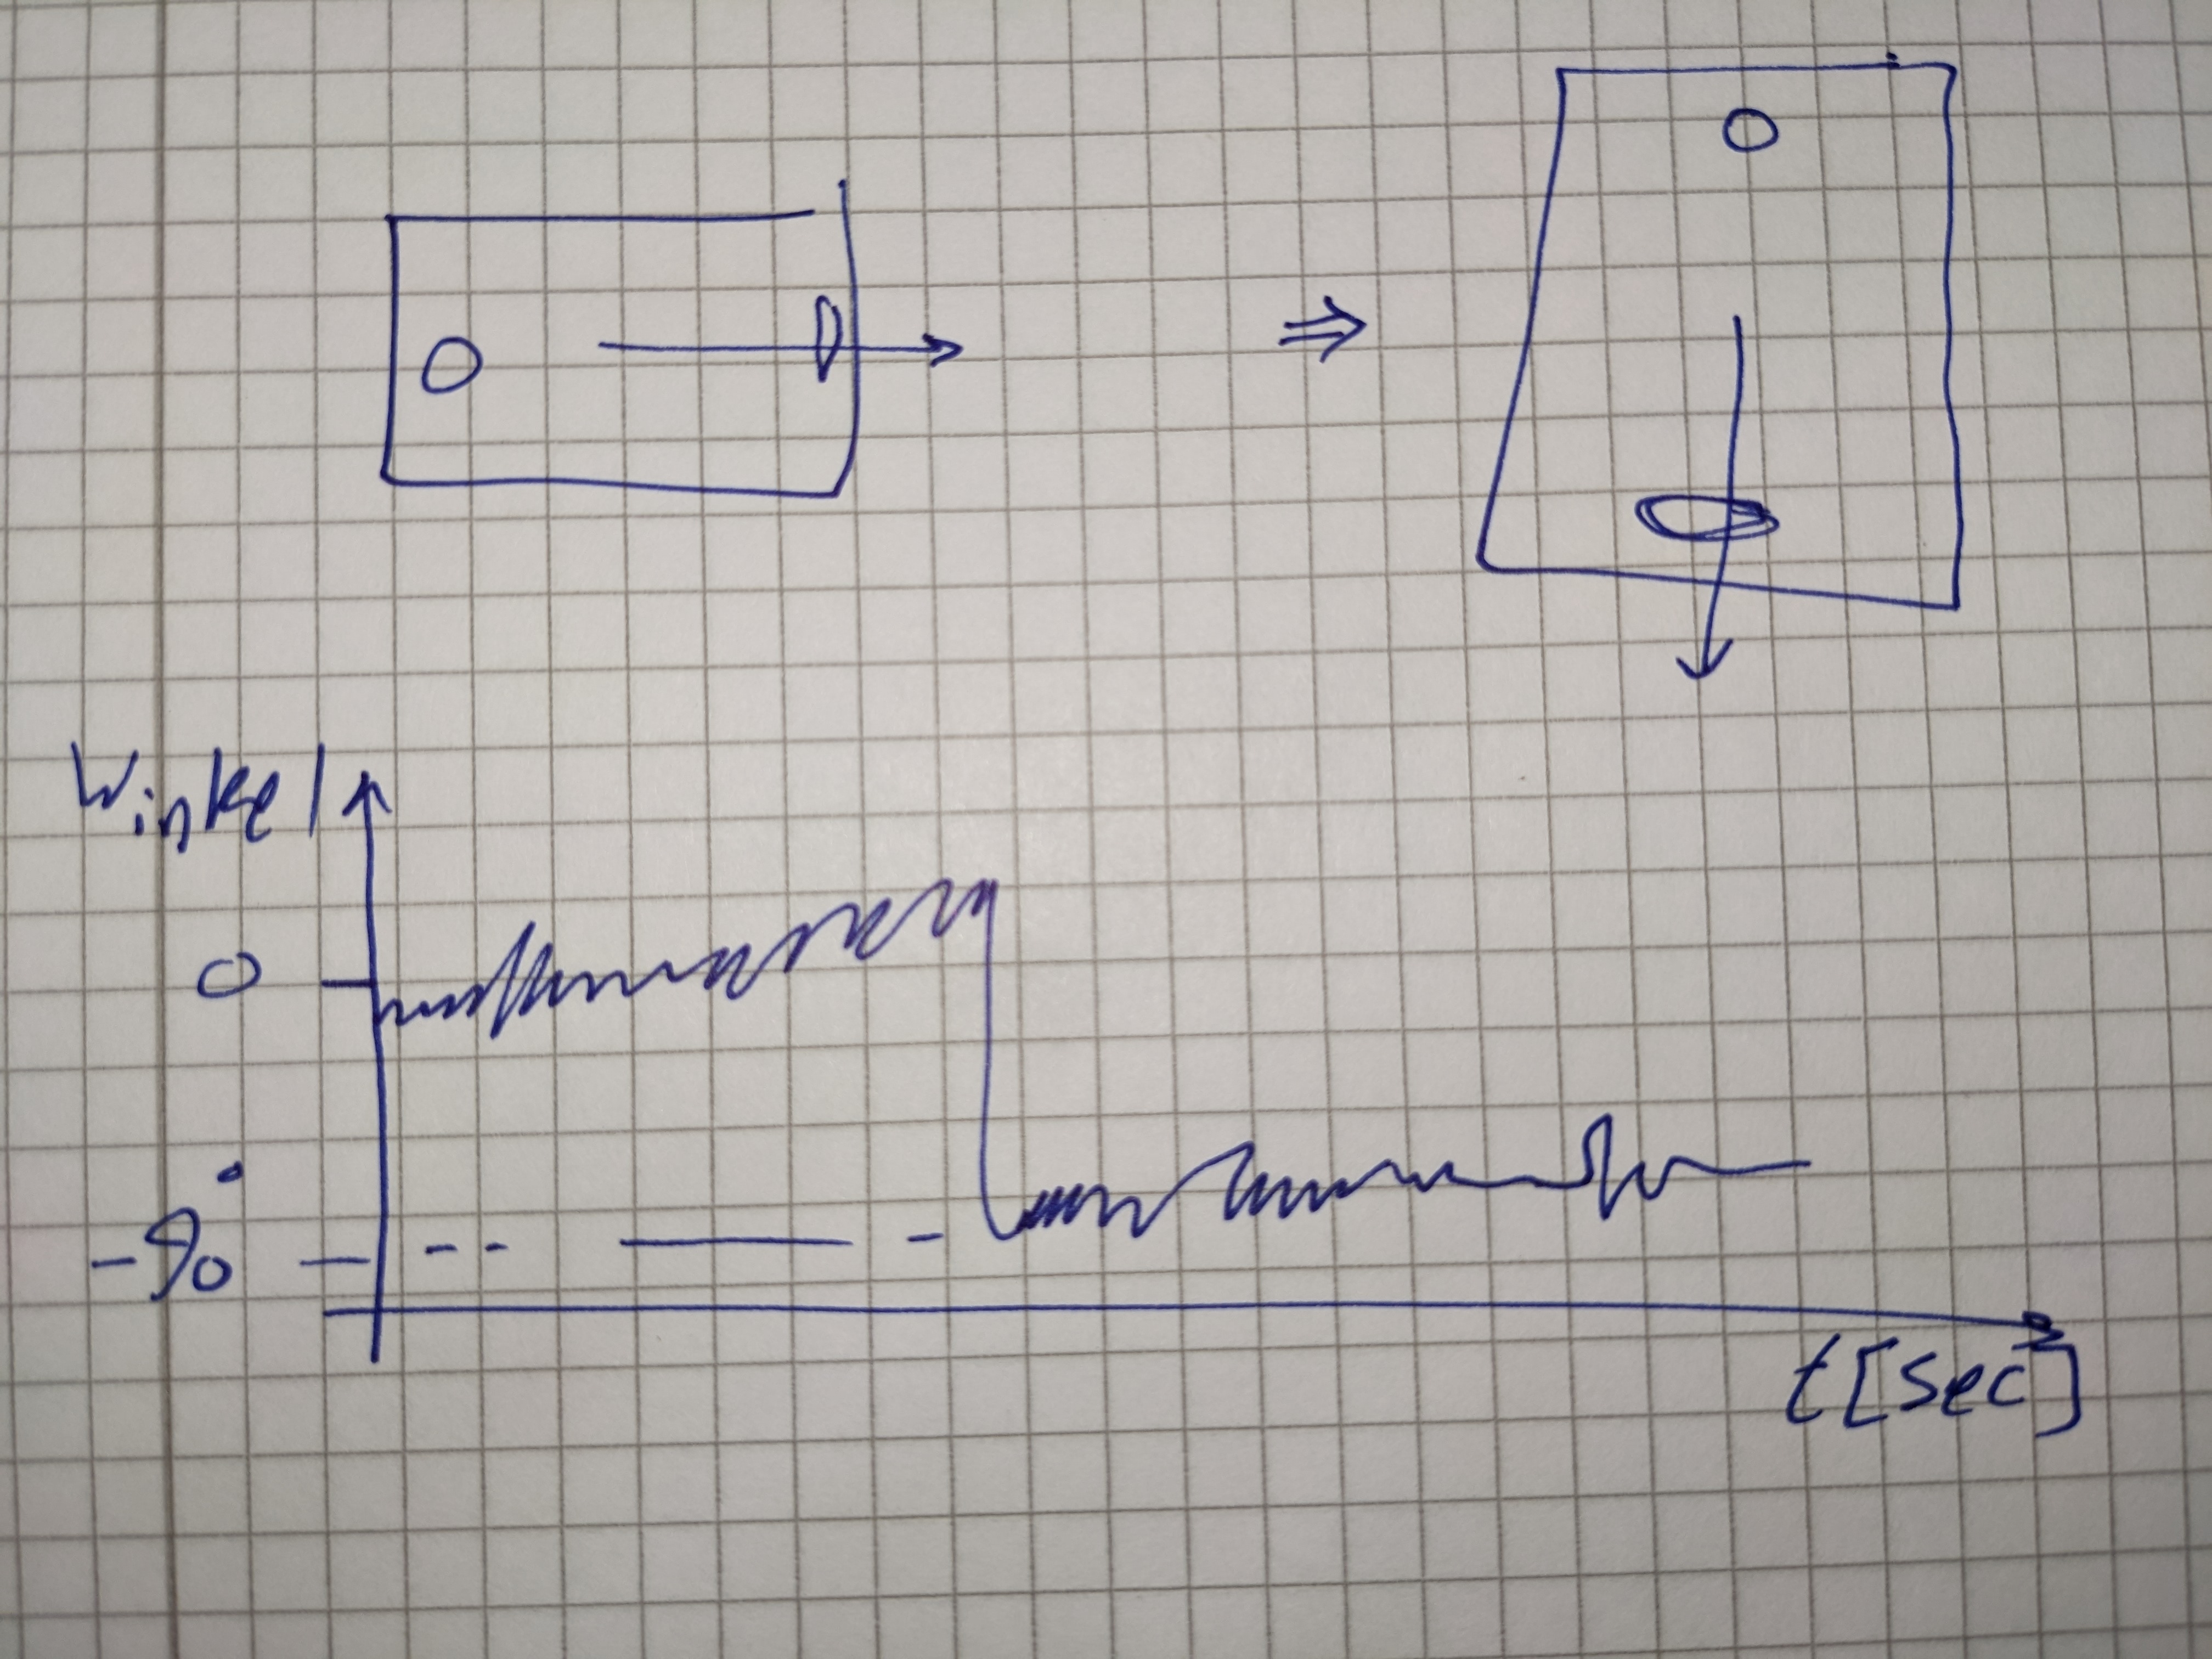 Winkel
0
-90°
t[sec]